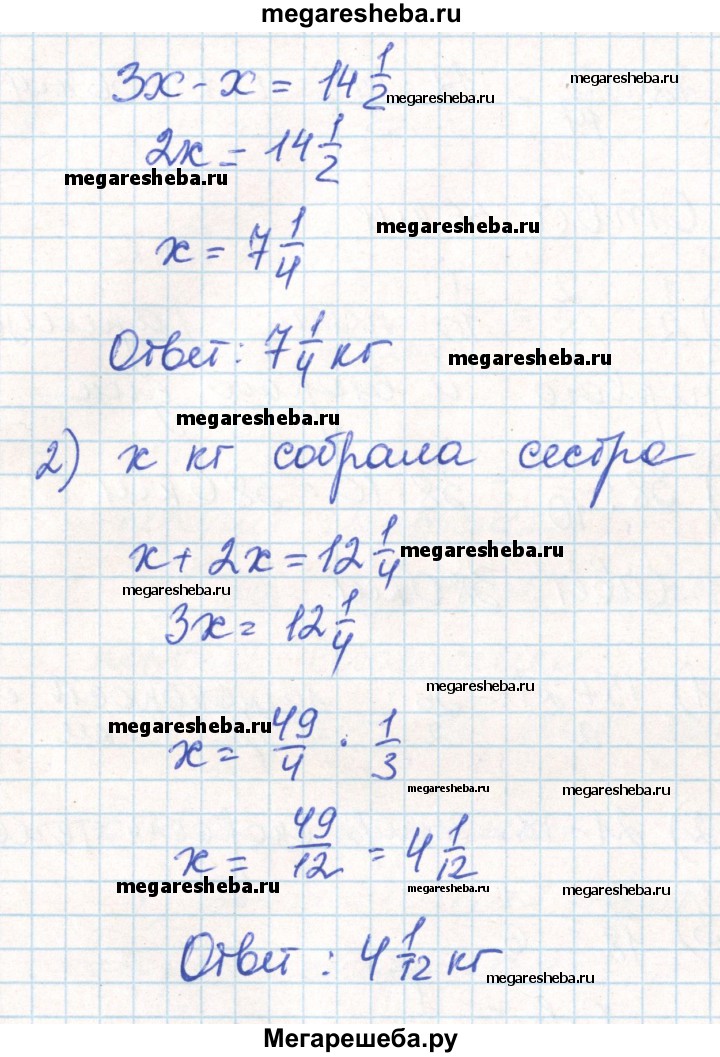 megaresheba.ru
3x - x = 14 1/2
megaresheba.ru
megaresheba.ru
2x = 14 1/2
megaresheba.ru
x = 7 1/4
megaresheba.ru
Ответ: 7 1/4 кг
megaresheba.ru
megaresheba.ru
2) x кг собрала сестра
x + 2x = 12 1/4
megaresheba.ru
megaresheba.ru
3x = 12 1/4
megaresheba.ru
megaresheba.ru
x = 49/4 · 1/3
megaresheba.ru
megaresheba.ru
x = 49/12 = 4 1/12
megaresheba.ru
megaresheba.ru
megaresheba.ru
Ответ: 4 1/12 кг
megaresheba.ru
Мегарешеба.ру